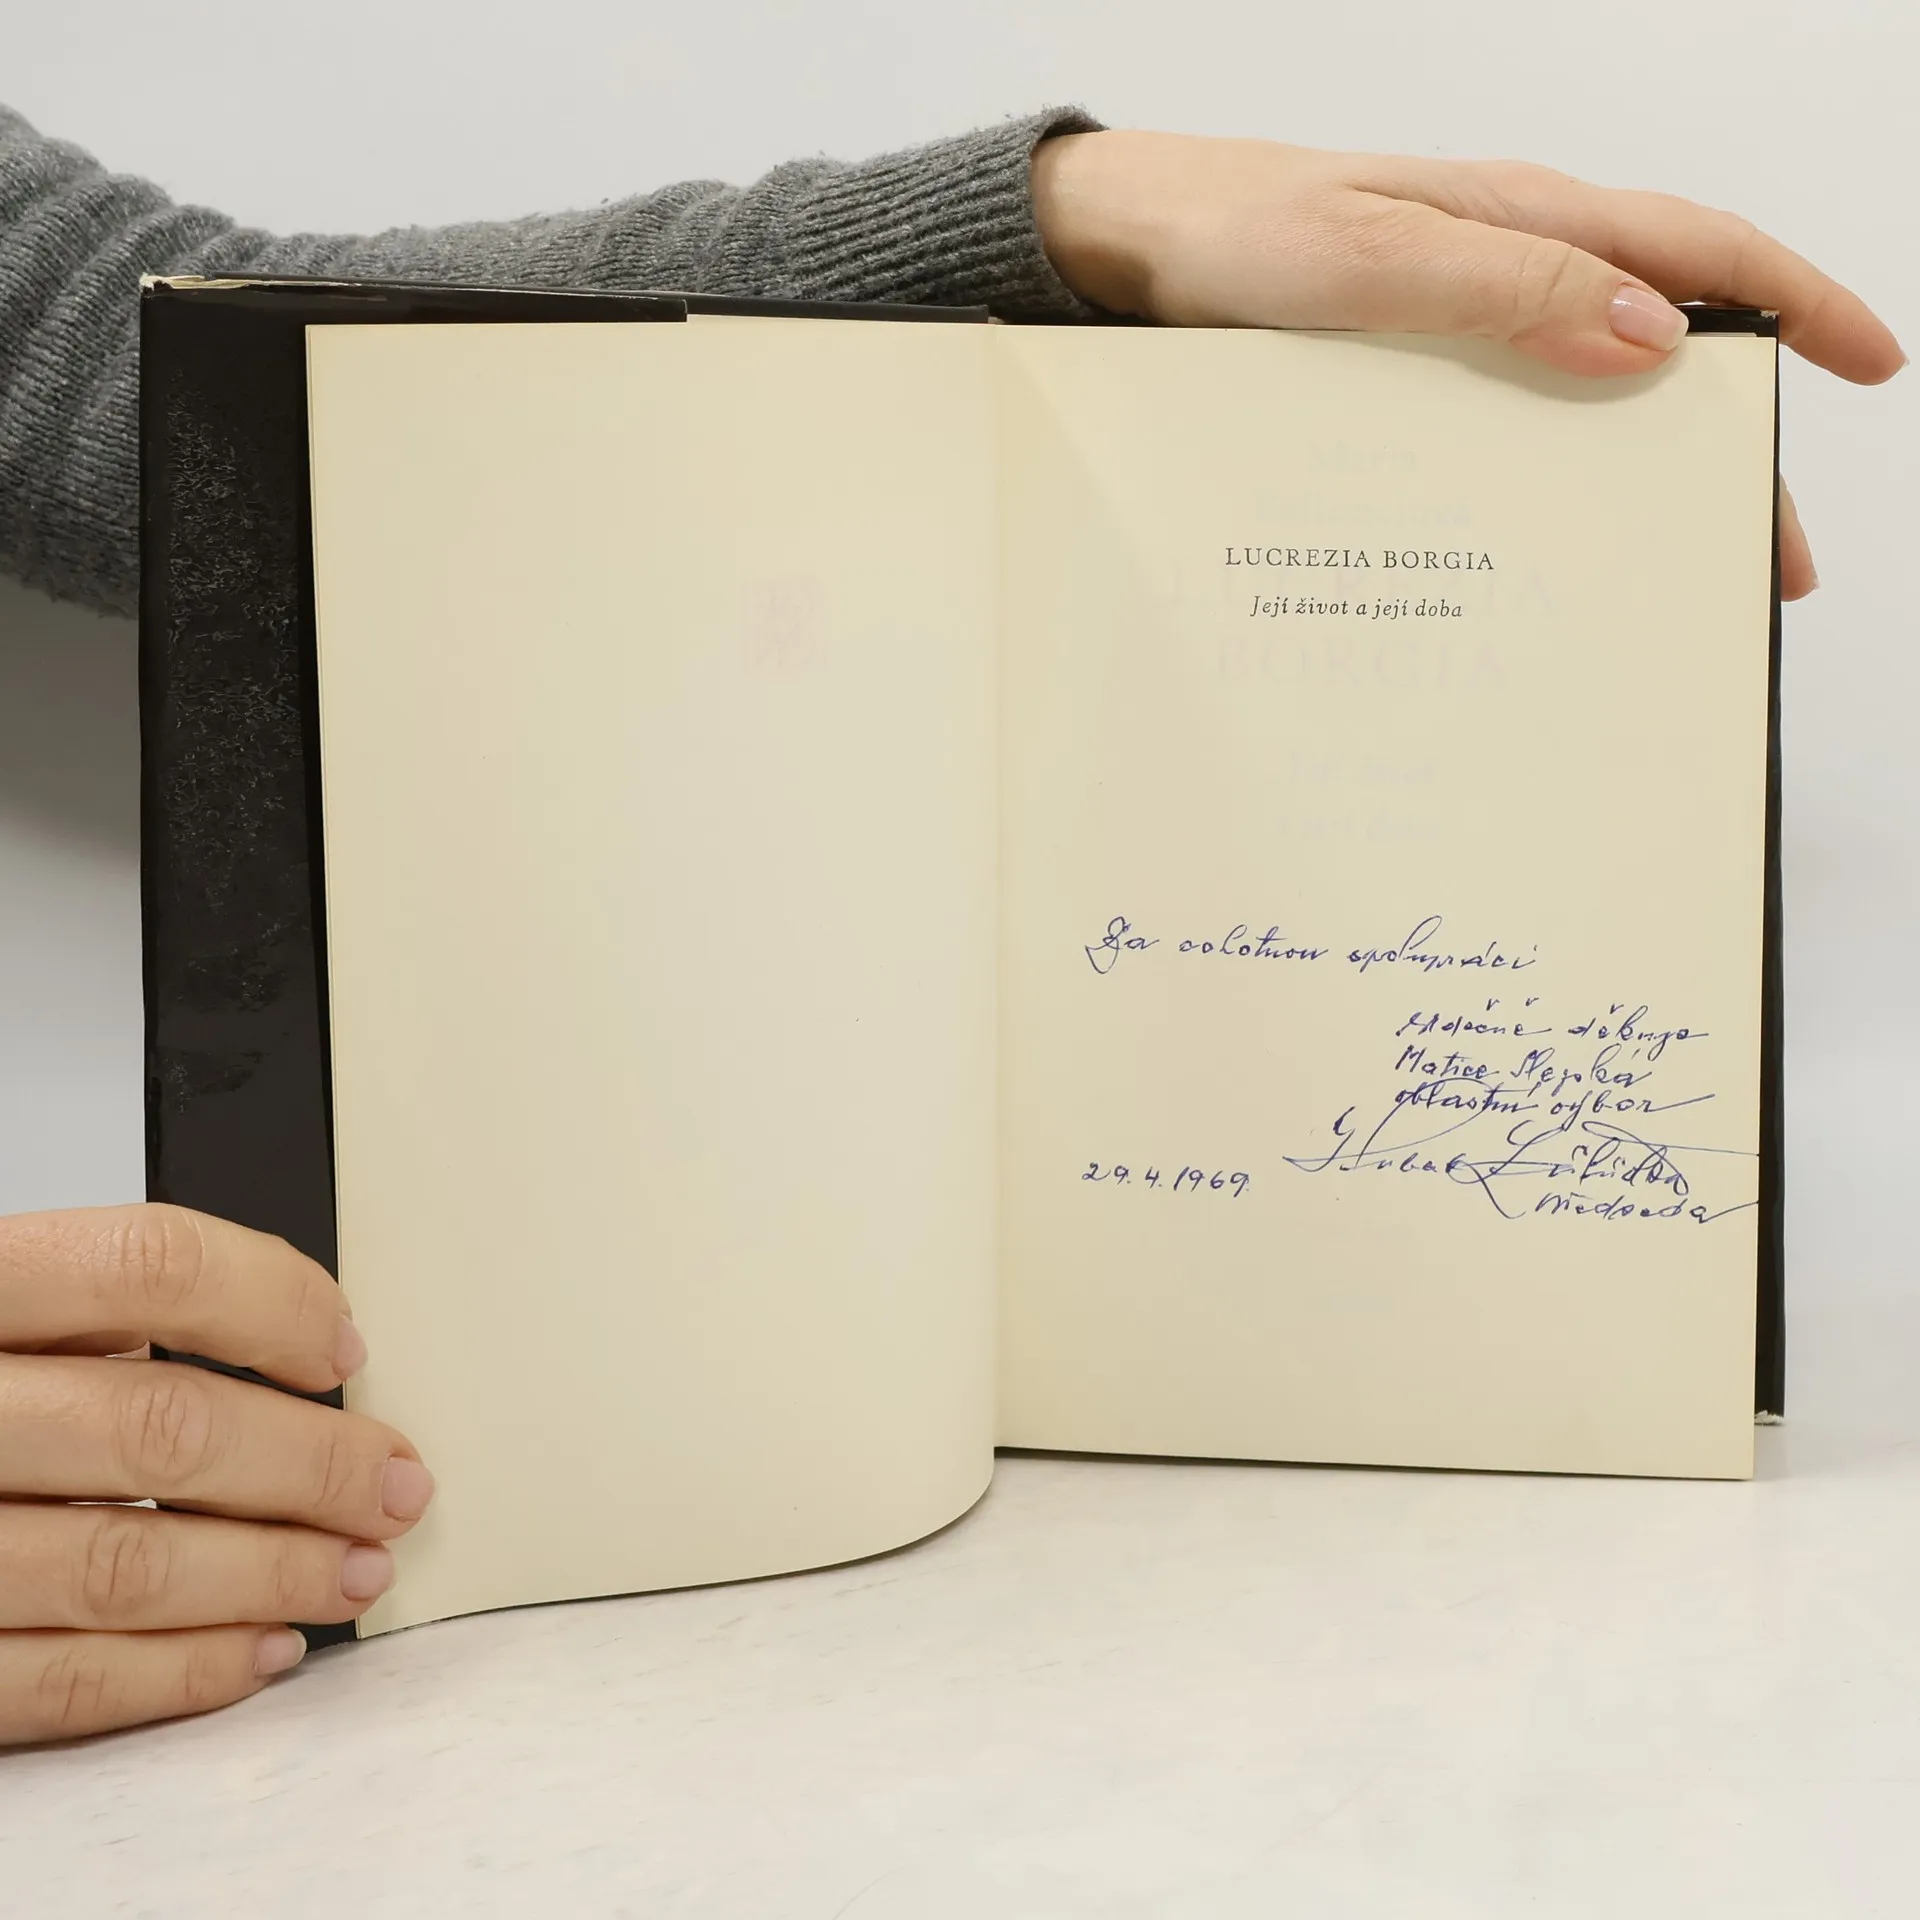 LUCREZIA BORGIA
Její život a její doba
Za ochotnou spolupráci
srdečně děkuje
Matice Slezská
oblastní výbor
29. 4. 1969.